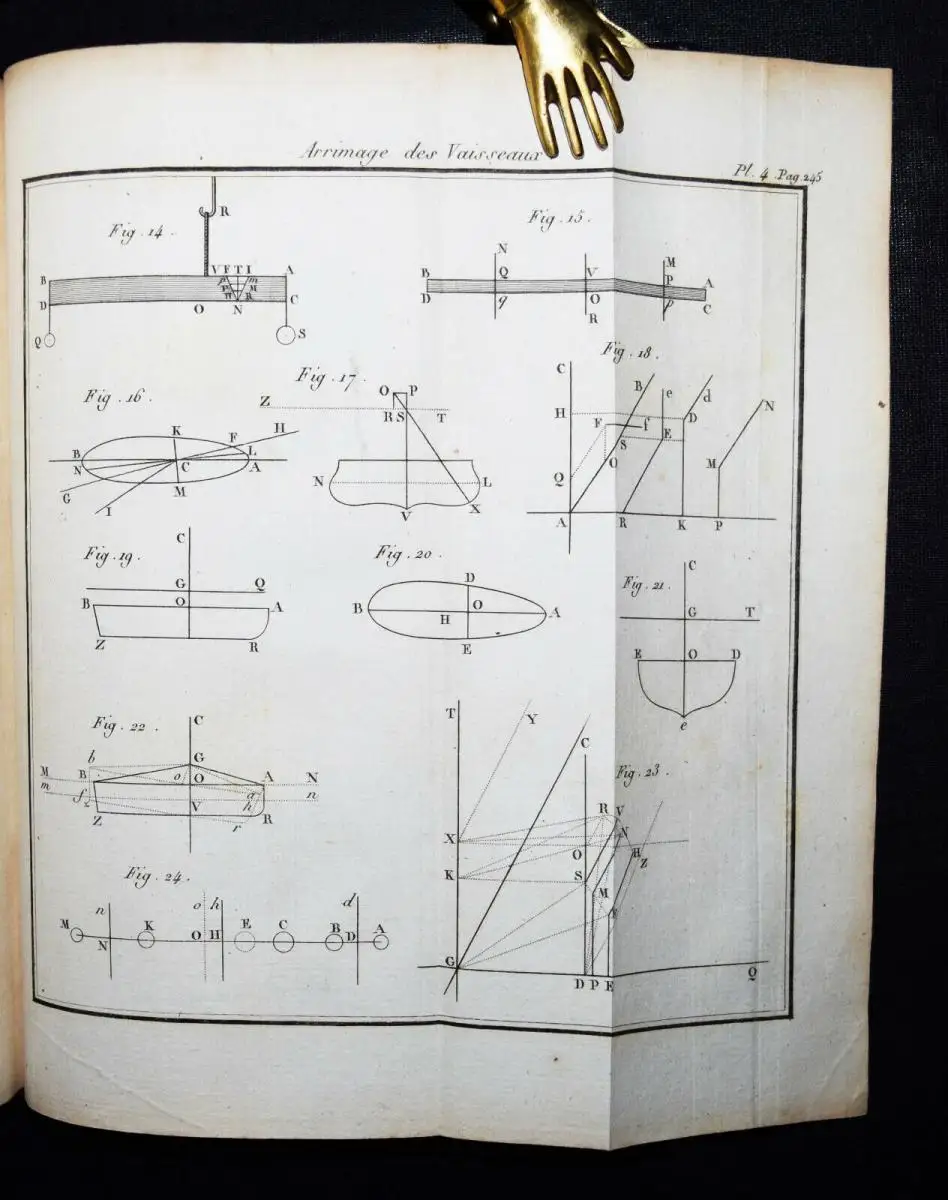 Arrimage des Vaisseaux
Pl. 4. Pag. 245
Fig. 14.
R
V F T I A
B
m
P M
D O N R C
Q S
Fig. 15.
N M
B Q V P A
D q O p C
R
Fig. 16.
K F H
B L
N C A
G M
I
Fig. 17.
O P
Z R S T
N L
V X
Fig. 18.
C B e d
H F f D N
S E
Q O M
A R K P
Fig. 19.
C
G Q
B O A
Z R
Fig. 20.
D
B O A
H
E
Fig. 21.
C
G T
E O D
e
Fig. 22.
C
b G
M B o O A N
m f a n
V h
Z r R
Fig. 23.
T Y C
R V
X N
O H Z
K S
M
G
D P E Q
Fig. 24.
n o h d
M K E C B A
N O H D